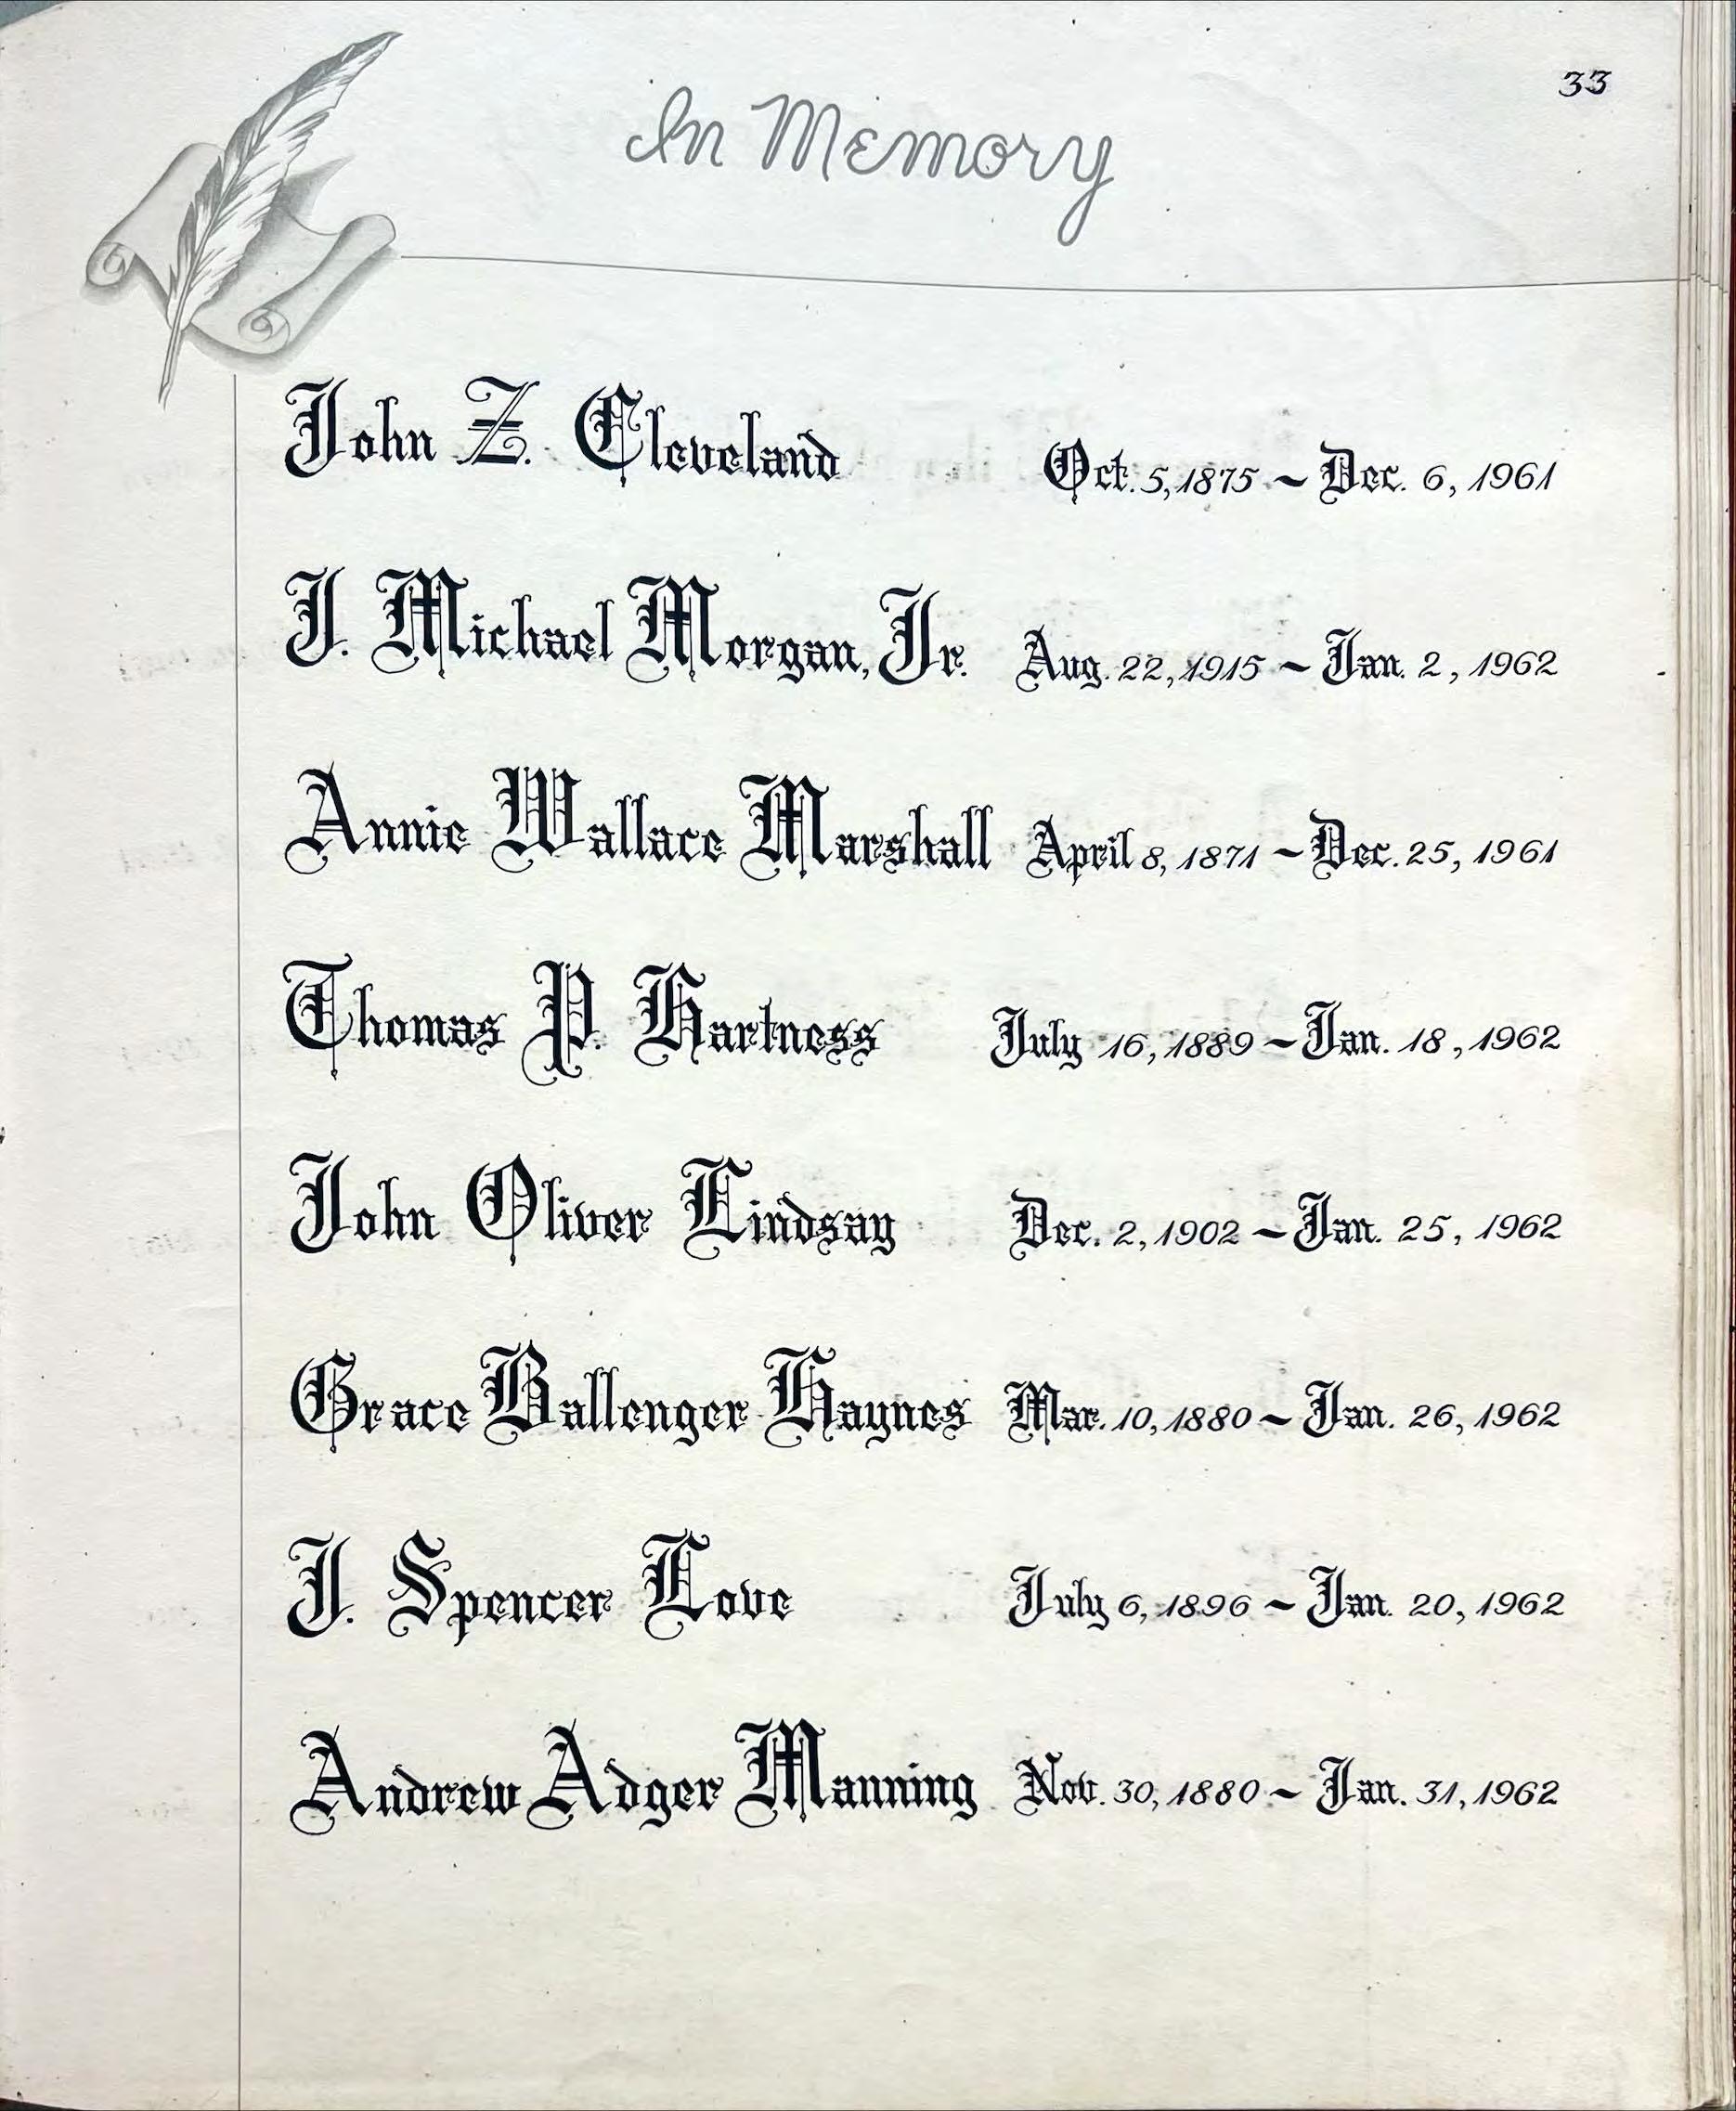 33
In Memory
John Z. Cleveland Oct. 5, 1875 ~ Dec. 6, 1961
J. Michael Morgan, Jr. Aug. 22, 1915 ~ Jan. 2, 1962
Annie Wallace Marshall April 8, 1871 ~ Dec. 25, 1961
Thomas P. Hartness July 16, 1889 ~ Jan. 18, 1962
John Oliver Lindsay Dec. 2, 1902 ~ Jan. 25, 1962
Grace Ballenger Haynes Mar. 10, 1880 ~ Jan. 26, 1962
J. Spencer Love July 6, 1896 ~ Jan. 20, 1962
Andrew Adger Manning Nov. 30, 1880 ~ Jan. 31, 1962